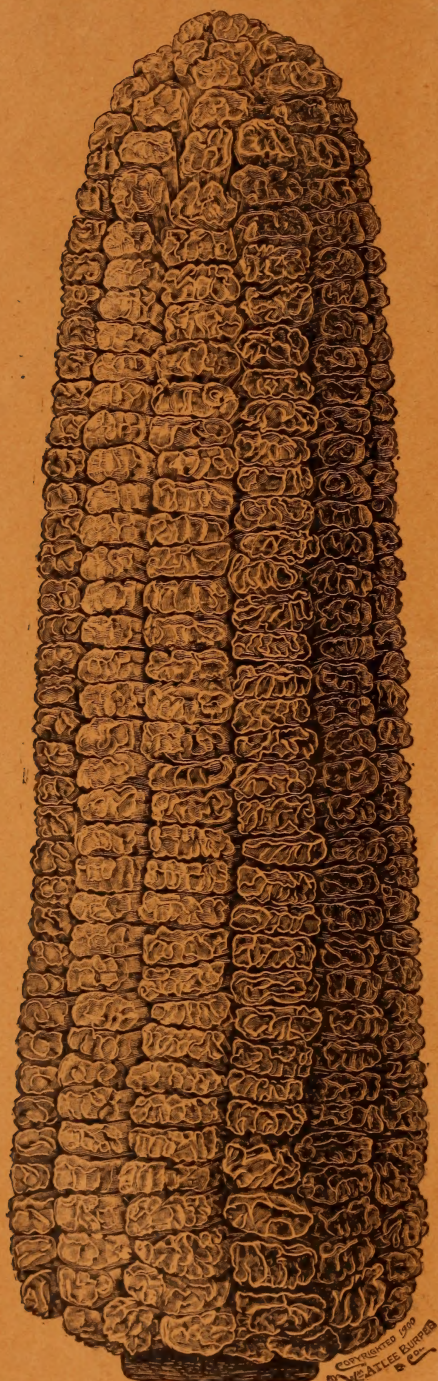 COPYRIGHTED 1900
BY WM ATLEE BURPEE
& CO.